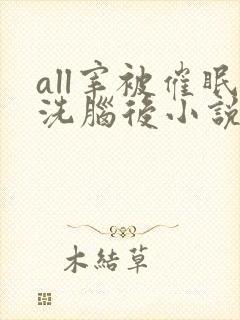 all宰被催眠
洗腦後小說
木結草